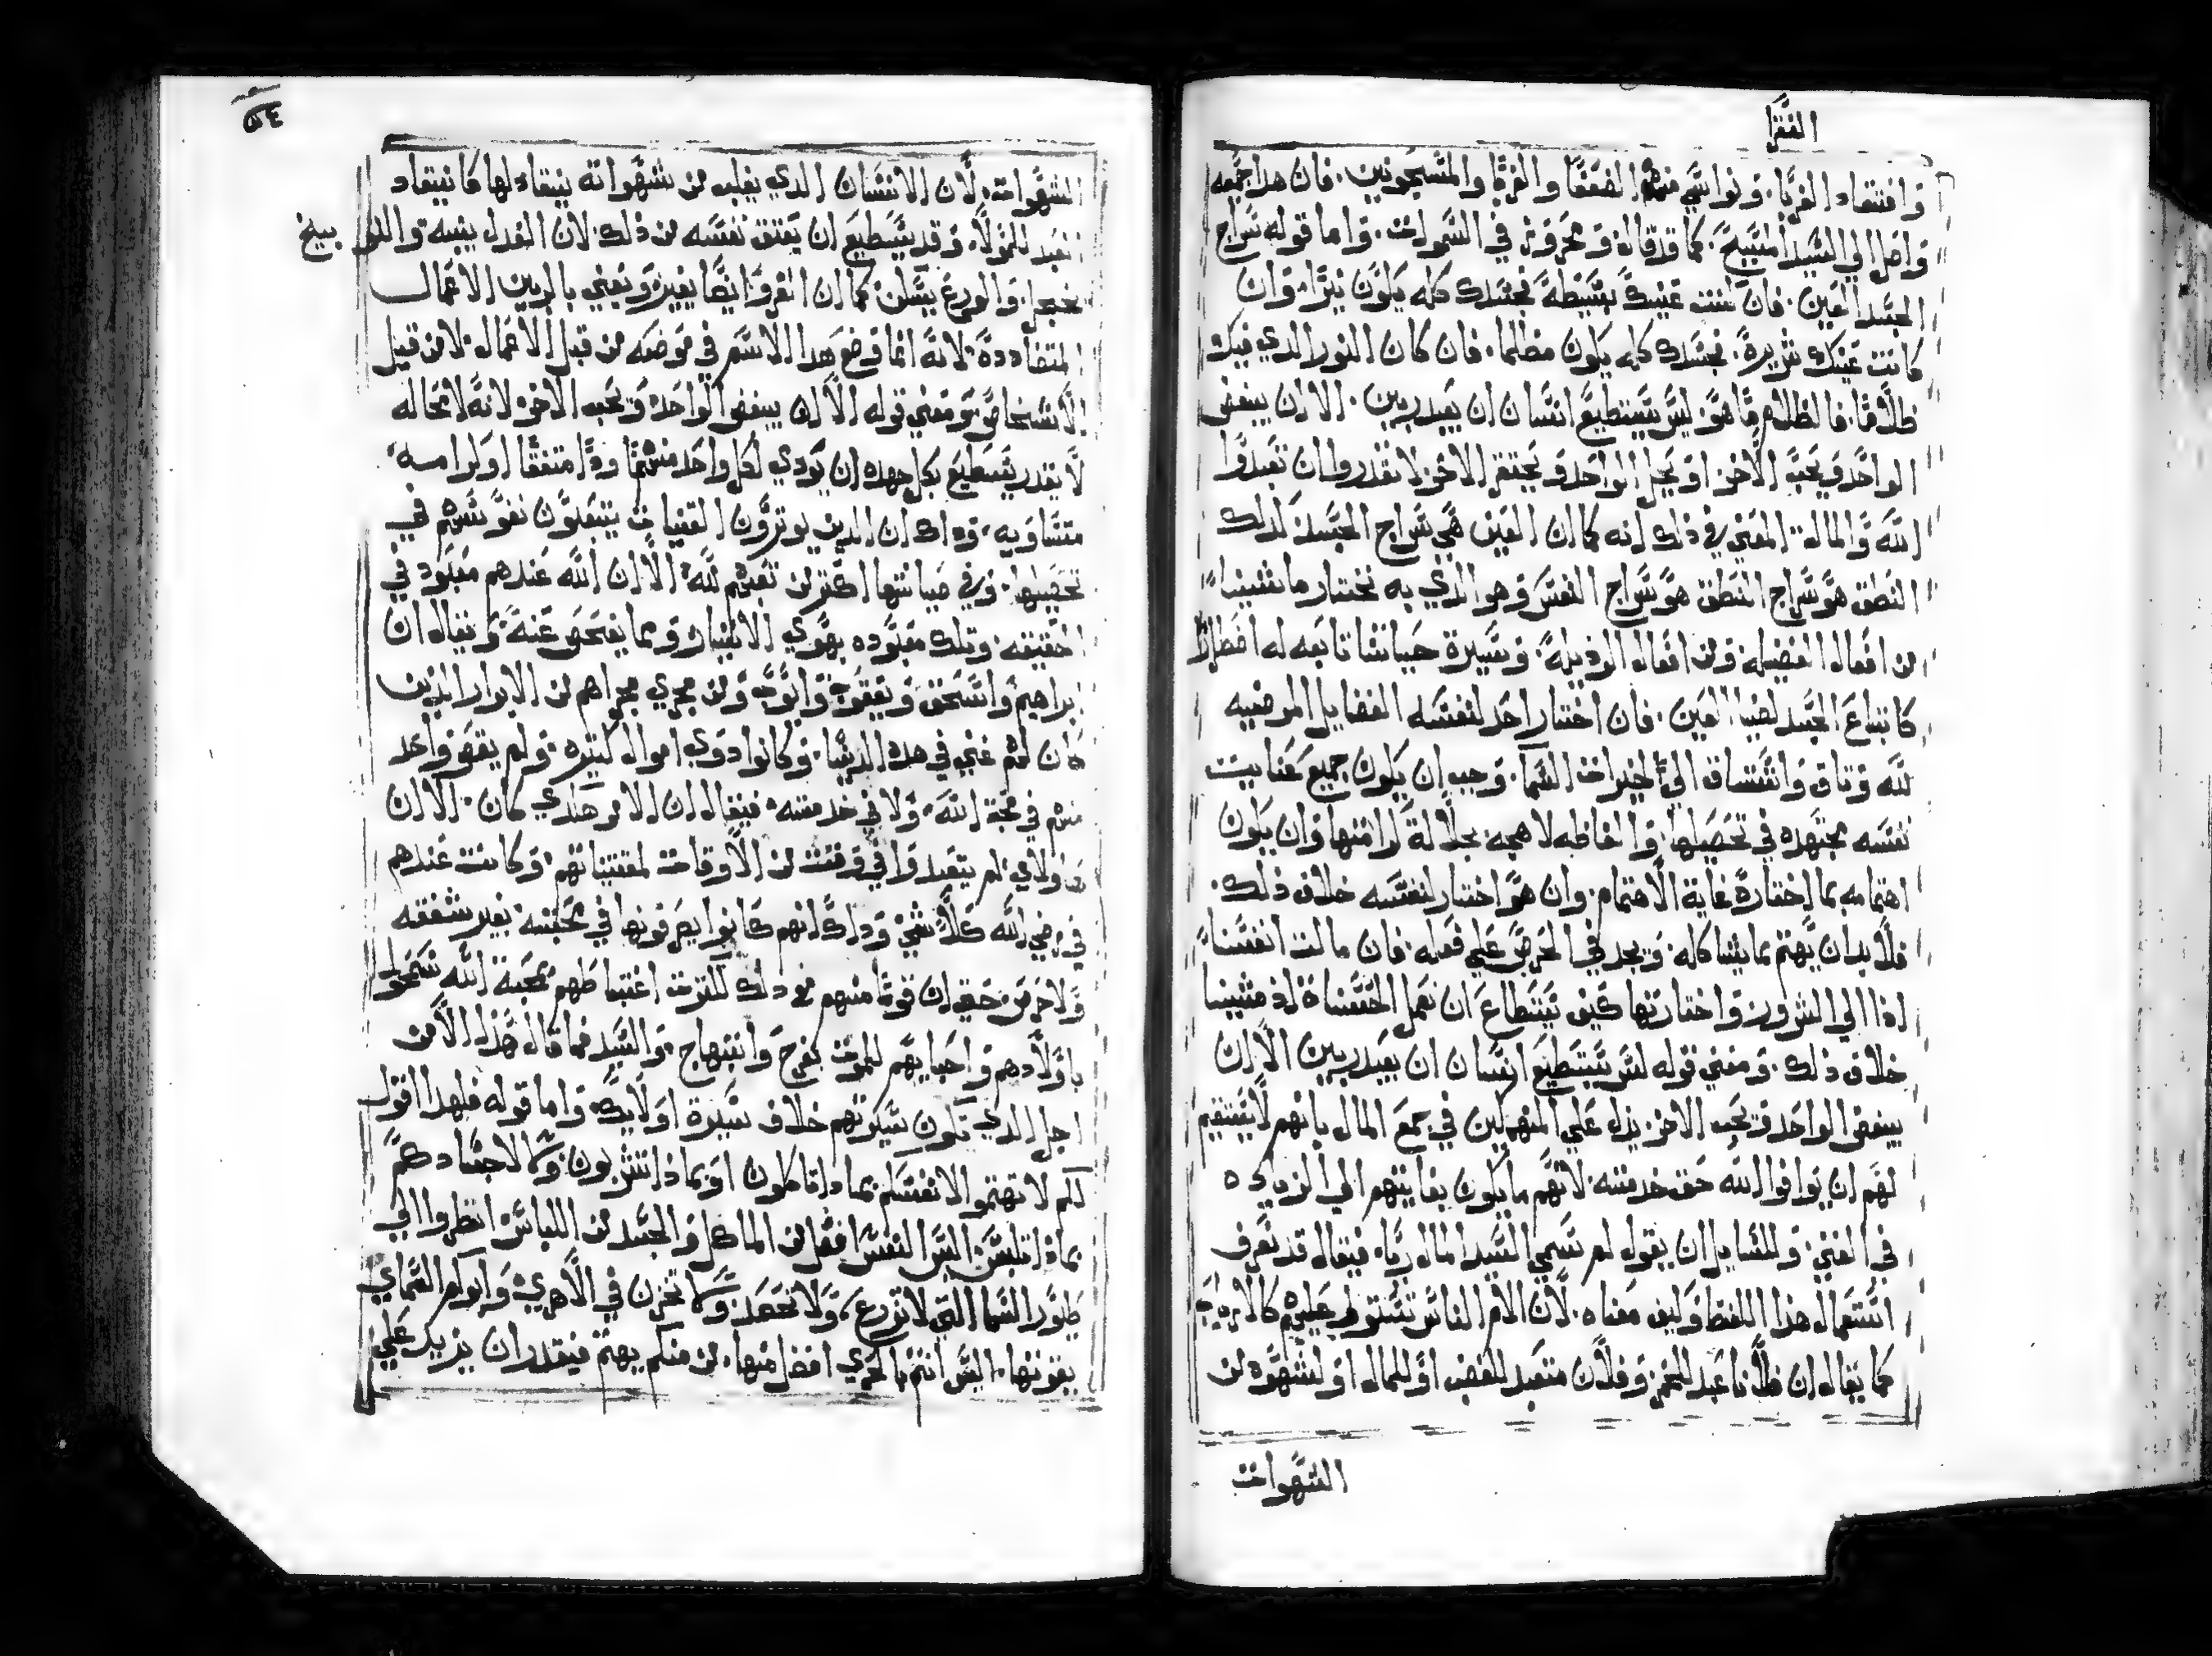 الفقرا
وافتقاد الغربا. ونواسي منهم الضعفا والغربا والمسجونين. فان هدا جمعه
واصل الي السيد المسيح. كما قد قال. ومحزون في السموات. واما قوله سراج
الجسد العين. فان كانت عينك بسيطة فجسدك كله يكون نيرا. وان
كانت عينك شريرة. فجسدك كله يكون مظلما. فان كان النور الدي فيك
ظلاما. فالظلام ما هو. ليس يستطيع انسان ان يعبد ربين. الا ان يبغض
الواحد ويحب الاخر. او يجل الواحد ويحتقر الاخر. لا تقدروا ان تعبدوا
الله والمال. المعني في ذلك انه كما ان العين هي سراج الجسد كذلك
النطق هو سراج النطق هو سراج النفس وهو الذي به نختار ما شينا
من افعال الفضيله ومن افعال الرذيلة. وسيرة حياتنا تابعه له اضطرارا
كاتباع الجسد لضيا العين. فان اختار احد لنفسه الفضايل المرضيه
لله وتاق واشتاق الي خيرات السما. وجب ان يكون جميع عنايت
نفسه مجتهده في تحصيلها. والفاظه لاهجه بجلالة كرامتها وان يكون
اهتمامه بما اختاره غاية الاهتمام. وان هو اختار لنفسه خلاف ذلك.
فلا بد ان يهتم بما يشاكله. ويجد في الحرص علي فعله. فان مالت انفسنا
اذا الي الشرور واختارتها كيف يستطاع ان نعمل الحسناة اذ مشينا
خلاف ذلك. ومعني قوله ليس يستطيع انسان ان يعبد ربين الا ان
يبغض الواحد ويحب الاخر. يدل علي المنهمكين في جمع المال بانهم لا يستقيم
لهم ان يوافوا الله حق خدمته. لانهم ما يكون بغايتهم الي الزياده
في الغني. وللسايل ان يقول لم سمي السيد المال ربا. فيقال قد يعرف
استعمال هذا اللفظ وكيف معناه. لان الام الناس تستولي عليهم كالارباب
كما يقال ان فلانا عبد للخمر. وفلان متعبد للغضب او للمال او لشهوه من
الشهوات
٥٤
الشهوات. لان الانسان الدي يغلب من شهواته ينقاد لها كانقياد
العبد للمولا. وقد يستطيع ان يعتق نفسه من ذلك. لان العدل ينبه واللوم
يخجل. والورع يسكن. كما ان الغرو ايضا يغير. ويعني بالربين الاعمال
المتضاددة. لانه انما وضع هدا الاسم في موضعه من قبل الاعمال. لا من قبل
الاشخاص. ومعني قوله الا ان يبغض الواحد ويحب الاخر. لانه لا محاله
لا يقدر يستطيع بكل جهده ان يودي لكل واحد منهما ودا متفقا او كرامه
متساويه. وداك ان الدين يوترون القنيات يتبعلون نفوسهم في
تحصيلها. وفي صيانتها اكتر من تعبدهم لله. الا ان الله عندهم معبود في
الحقيقه. وتلك معبوده بهوي الانسان ومما يفتحص عنه. ويقال ان
ابراهيم واسحق ويعقوب وايوب. ومن مجري مجراهم من الابرار الذين
كان لهم غني في هده الدنيا. وكانوا دوي اموال كتيره. ولم يقصر واحد
منهم في محبة الله. ولا في خدمته. فيقال ان الامر هكدي كان. الا ان
هاولاي لم يتعبدوا في وقت من الاوقات لمقتنياتهم. وكانت عندهم
في رضي الله كلا شي. وداك انهم كانوا يصرفونها في محبته. بغير شفقه
ولا حرص. حتي ان قوما منهم مع دلك لكترت اغتباطهم بمحبة الله سمحوا
باولادهم واحبايهم للموت بفرح وابتهاج. والسيد فما قال هذا الا من
اجل الدي تكون سيرتهم خلاف سيرة اولايك. واما قوله فلهدا اقول
لكم لا تهتموا لانفسكم بماذا تاكلون او بماذا تشربون. ولا لاجسادكم
بماذا تلبسن. اليس النفس افضل من الماكل والجسد من اللباس. انظروا الي
طيور السما التي لا تزرع، ولا تحصد. ولا تخزن في الاهري. وابوكم السماي
يقوتها. اليس انتم بالحري افضل منها. من منكم يهتم فيقدر ان يزيد علي